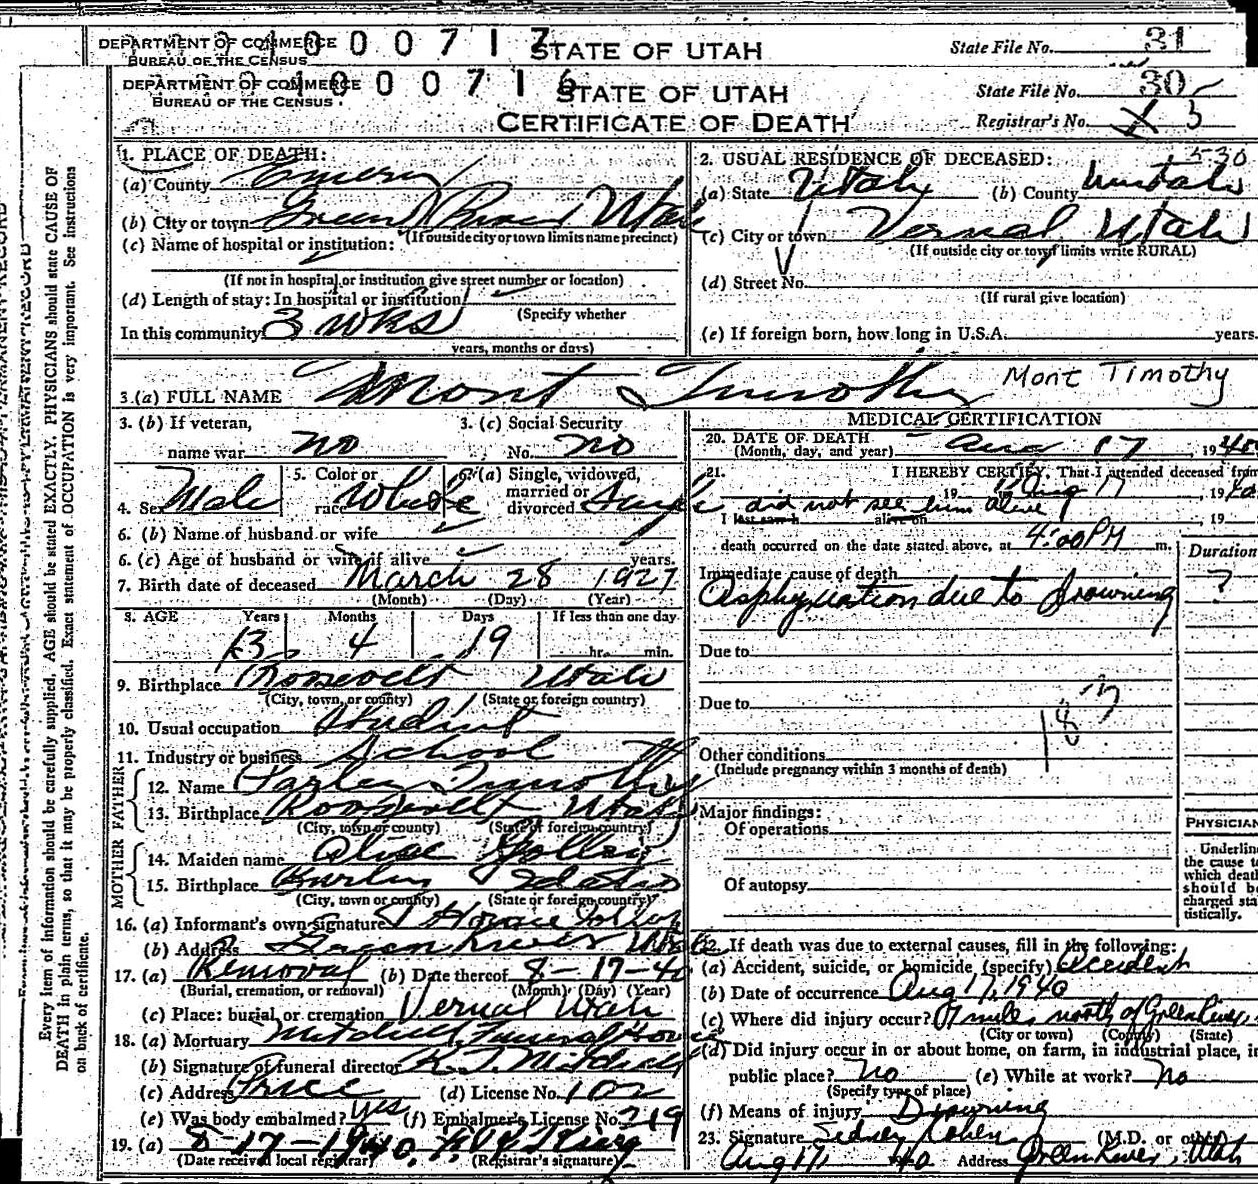 DEPARTMENT OF COMMERCE
BUREAU OF THE CENSUS
1000717
STATE OF UTAH
State File No. 31
DEPARTMENT OF COMMERCE
BUREAU OF THE CENSUS
1000716
STATE OF UTAH
State File No. 30
CERTIFICATE OF DEATH
Registrar's No. 3
Every item of information should be carefully supplied. AGE should be stated EXACTLY. PHYSICIANS should state CAUSE OF
DEATH in plain terms, so that it may be properly classified. Exact statement of OCCUPATION is very important. See instructions
on back of certificate.
1. PLACE OF DEATH:
(a) County Emery
(b) City or town Green River Utah
(If outside city or town limits name precinct)
(c) Name of hospital or institution:
(If not in hospital or institution give street number or location)
(d) Length of stay: In hospital or institution
(Specify whether
In this community 3 wks
years, months or days)
2. USUAL RESIDENCE OF DECEASED: 530
(a) State Utah (b) County Uintah
(c) City or town Vernal Utah
(If outside city or town limits write RURAL)
(d) Street No.
(If rural give location)
(e) If foreign born, how long in U.S.A. years.
3. (a) FULL NAME Mont Timothy Mont Timothy
3. (b) If veteran,
name war no
3. (c) Social Security
No. no
4. Sex Male
5. Color or
race White
6. (a) Single, widowed,
married or
divorced Single
6. (b) Name of husband or wife
6. (c) Age of husband or wife if alive years.
7. Birth date of deceased March 28 1927
(Month) (Day) (Year)
8. AGE Years Months Days If less than one day
13 4 19 hr. min.
9. Birthplace Roosevelt Utah
(City, town, or county) (State or foreign country)
10. Usual occupation Student
11. Industry or business School
FATHER
12. Name Parley Timothy
13. Birthplace Roosevelt Utah
(City, town or county) (State or foreign country)
MOTHER
14. Maiden name
15. Birthplace Idaho
(City, town or county) (State or foreign country)
16. (a) Informant's own signature
(b) Address Green River Utah
17. (a) Removal (b) Date thereof 8-17-40
(Burial, cremation, or removal) (Month) (Day) (Year)
(c) Place: burial or cremation Vernal Utah
18. (a) Mortuary Mitchell Funeral Home
(b) Signature of funeral director Mitchell
(c) Address Price (d) License No. 102
(e) Was body embalmed? yes (f) Embalmer's License No. 219
19. (a) 8-17-1940
(Date received local registrar) (Registrar's signature)
MEDICAL CERTIFICATION
20. DATE OF DEATH Aug 17, 1940
(Month, day, and year)
21. I HEREBY CERTIFY, That I attended deceased from
19 Aug 17, 1940
did not see him alive
I last saw h alive on , 19
death occurred on the date stated above, at 4:00 PM m.
Duration
Immediate cause of death
Asphyxiation due to drowning ?
Due to
Due to
Other conditions
(Include pregnancy within 3 months of death)
Major findings:
Of operations
Of autopsy
PHYSICIAN
Underline
the cause to
which death
should be
charged sta
tistically.
22. If death was due to external causes, fill in the following:
(a) Accident, suicide, or homicide (specify) Accident
(b) Date of occurrence Aug 17, 1940
(c) Where did injury occur? 7 miles north of Green River
(City or town) (County) (State)
(d) Did injury occur in or about home, on farm, in industrial place, in
public place? no (e) While at work? no
(Specify type of place)
(f) Means of injury Drowning
23. Signature Sidney (M.D. or other)
Aug 17, 40 Address Green River, Utah